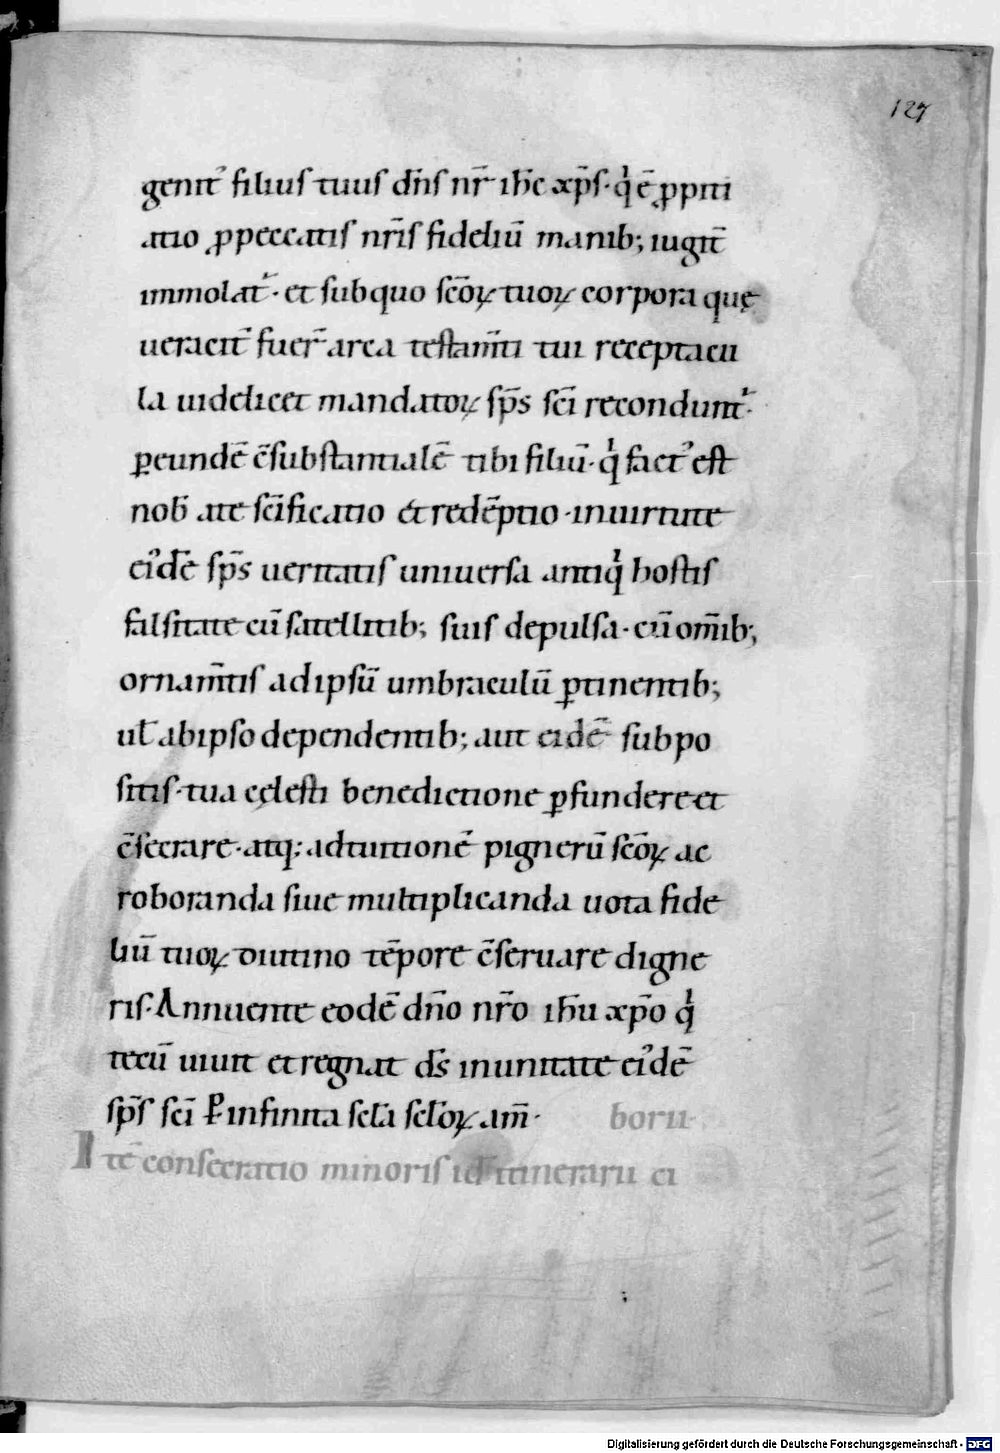 127
genit᷒ filius tuus dn̄s nr̄ ih̄c xp̄s· qͥ ē ꝓpiti
atio ꝓ peccatis nr̄is fideliū manib; iugit̄
immolat᷑· et sub quo sc̄oꝝ tuoꝝ corpora quę
ueracit̄ fuer̄ arca testam̄ti tui receptacu
la uidelicet mandatoꝝ sp̄s sc̄i recondunt᷑·
ꝑ eundē c̄substantialē tibi filiū· qͥ fact᷒ est
nob̄ a te sc̄ificatio & redēptio· in uirtute
ei᷒dē sp̄s ueritatis uniuersa antiqͥ hostis
falsitate cū satellitib; suis depulsa· cū om̄ib;
ornam̄tis ad ipsū umbraculū ꝑtinentib;
ul̄ ab ipso dependentib; aut eidē subpo
sitis· tua cęlesti benedictione ꝑfundere et
c̄secrare· atq; ad tuitionē pignerū sc̄oꝝ ac
roboranda siue multiplicanda uota fide
liū tuoꝝ diutino tēpore c̄seruare digne
ris· Annuente eodē dn̄o nr̄o ih̄u xp̄o qͥ
tecū uiuit et regnat ds̄ in unitate ei᷒dē
sp̄s sc̄i ꝑ infinita scl̄a scl̄oꝝ am̄· borii·
Itē consecratio minoris id̄ itinerarii ci
Digitalisierung gefördert durch die Deutsche Forschungsgemeinschaft - DFG